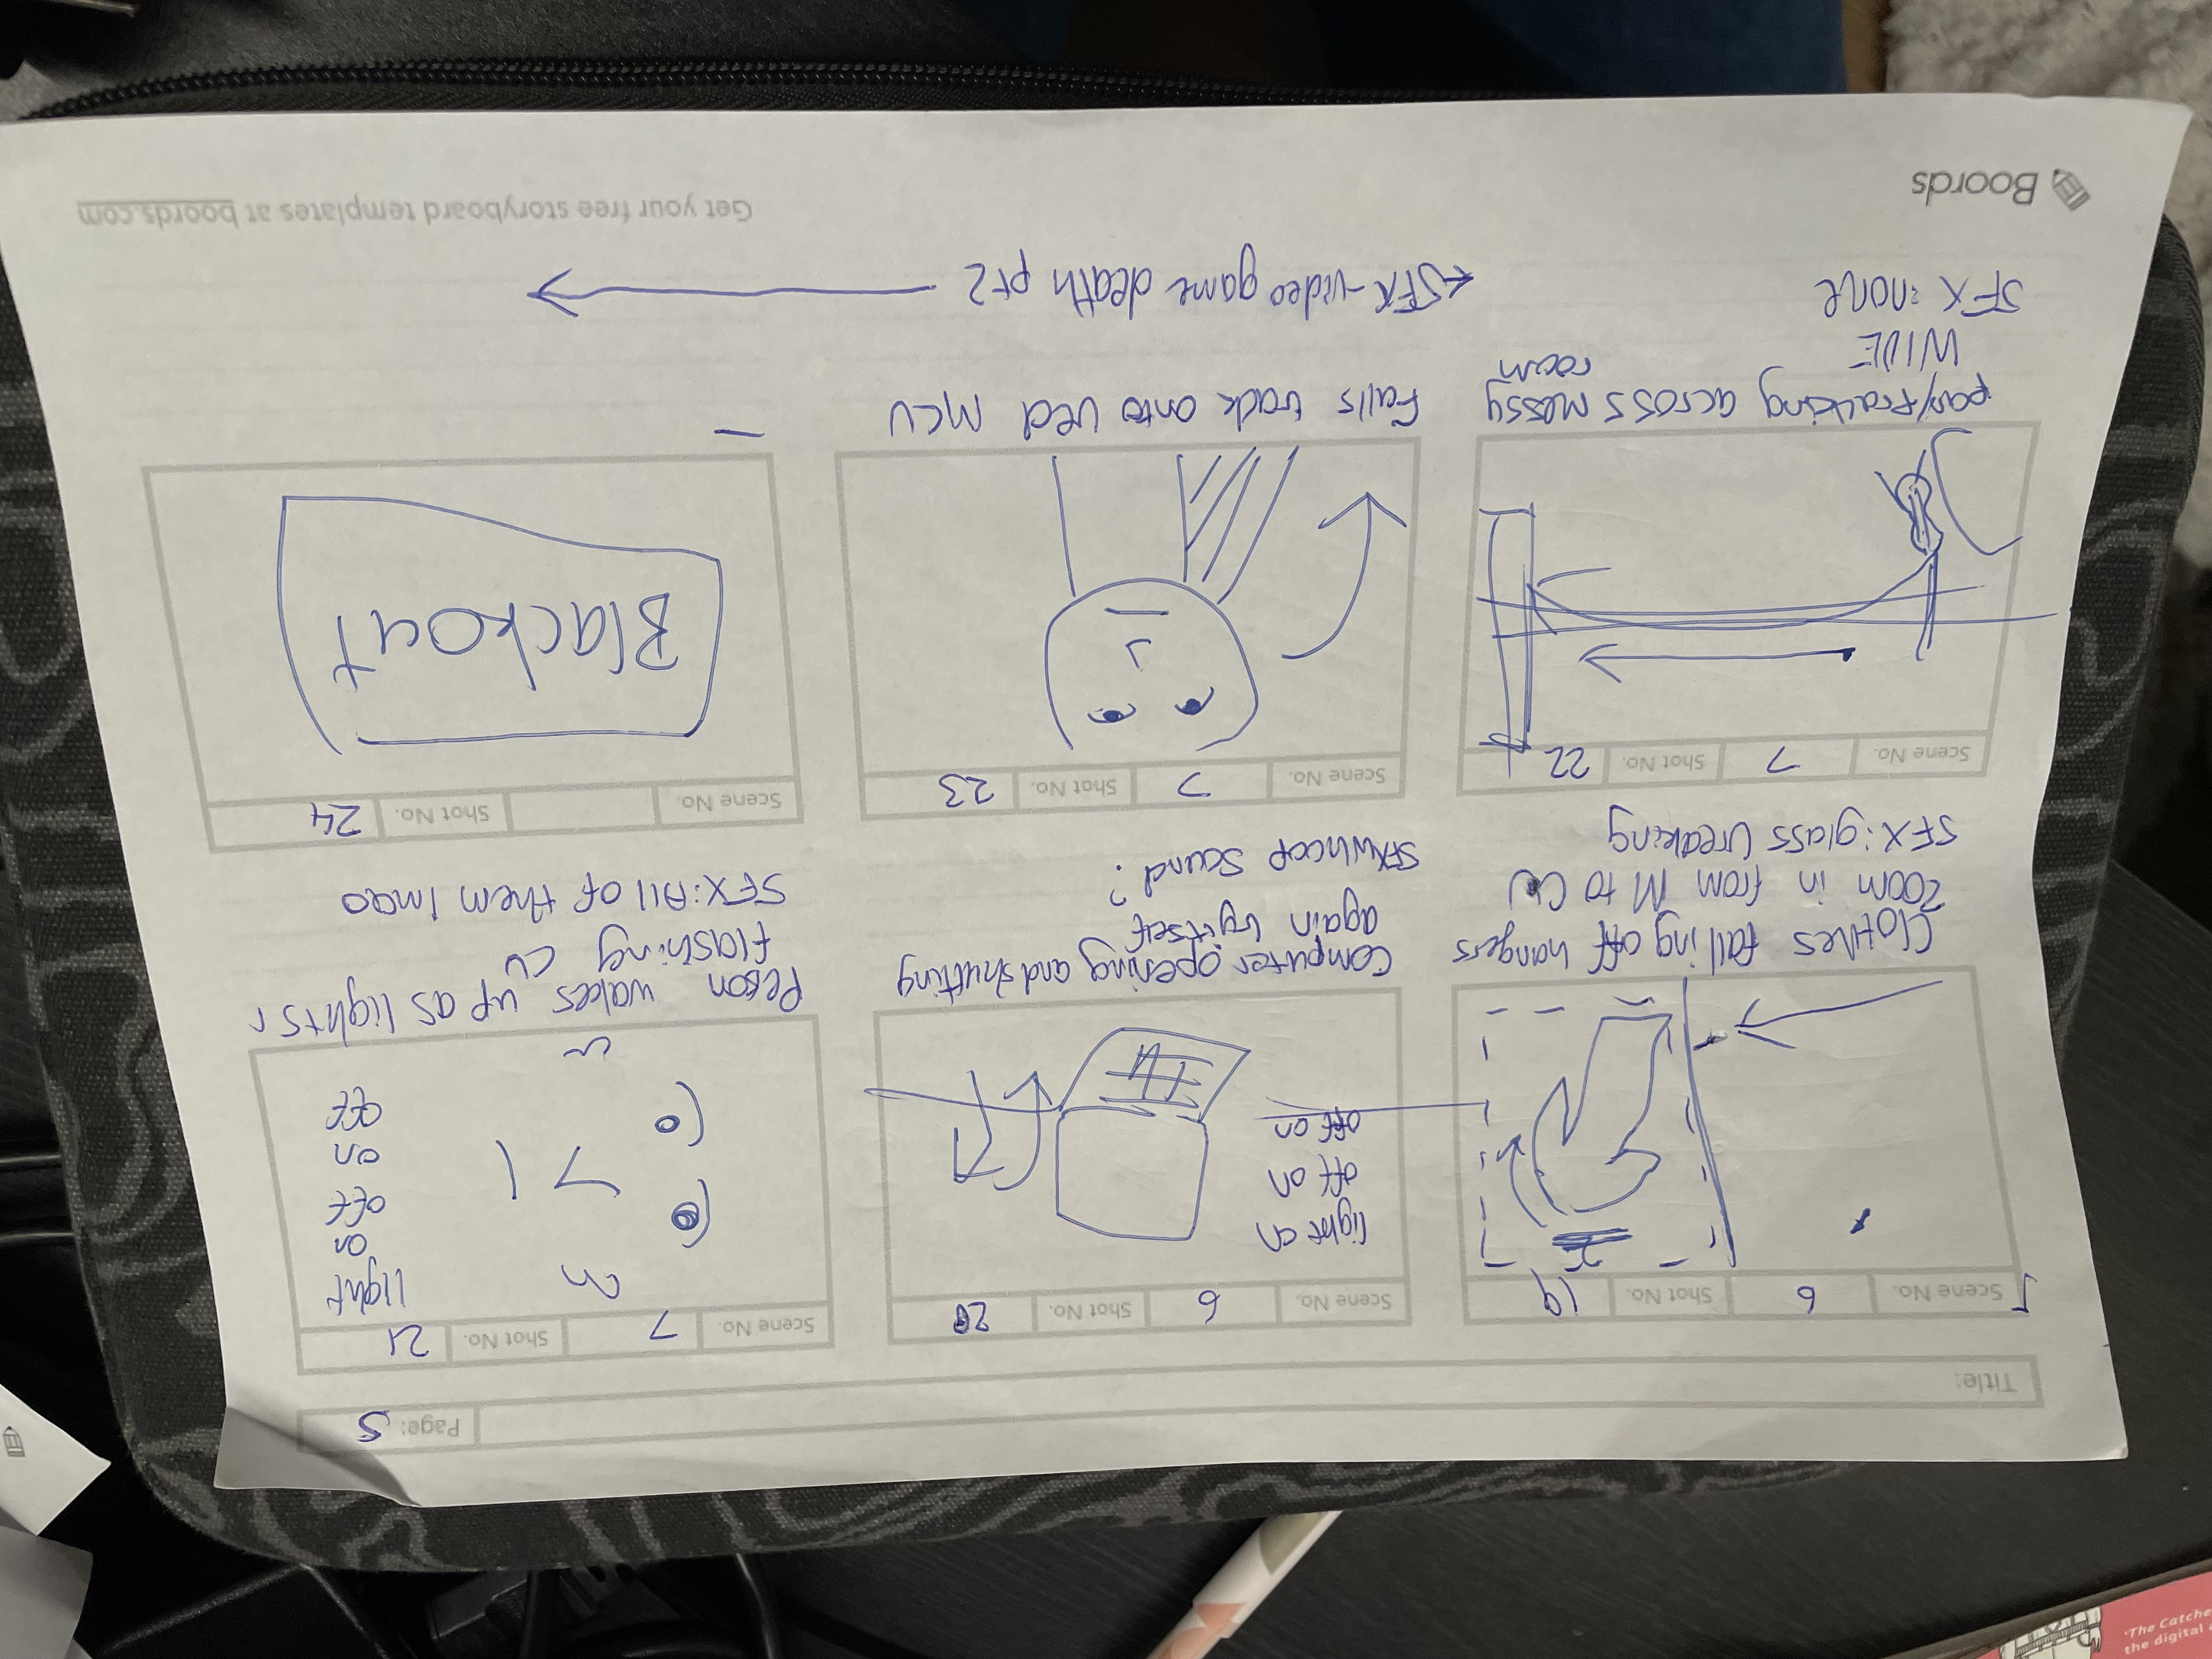 Title:
Page: 5
Scene No. 6 Shot No. 19
Clothes falling off hangers
zoom in from M to CU
SFX: glass breaking
Scene No. 6 Shot No. 20
light on
off on
off on
Computer opening and shutting
again by itself
SFX whoop sound?
Scene No. 7 Shot No. 21
light
on
off
on
off
Person wakes up as lights r
flashing CU
SFX: All of them lmao
Scene No. 7 Shot No. 22
pan/tracking across messy
room
WIDE
SFX: none
Scene No. 7 Shot No. 23
Falls back onto bed MCU
Scene No. Shot No. 24
Blackout
—
SFX - video game death pt2
Boords
Get your free storyboard templates at boords.com
The Catche
the digital